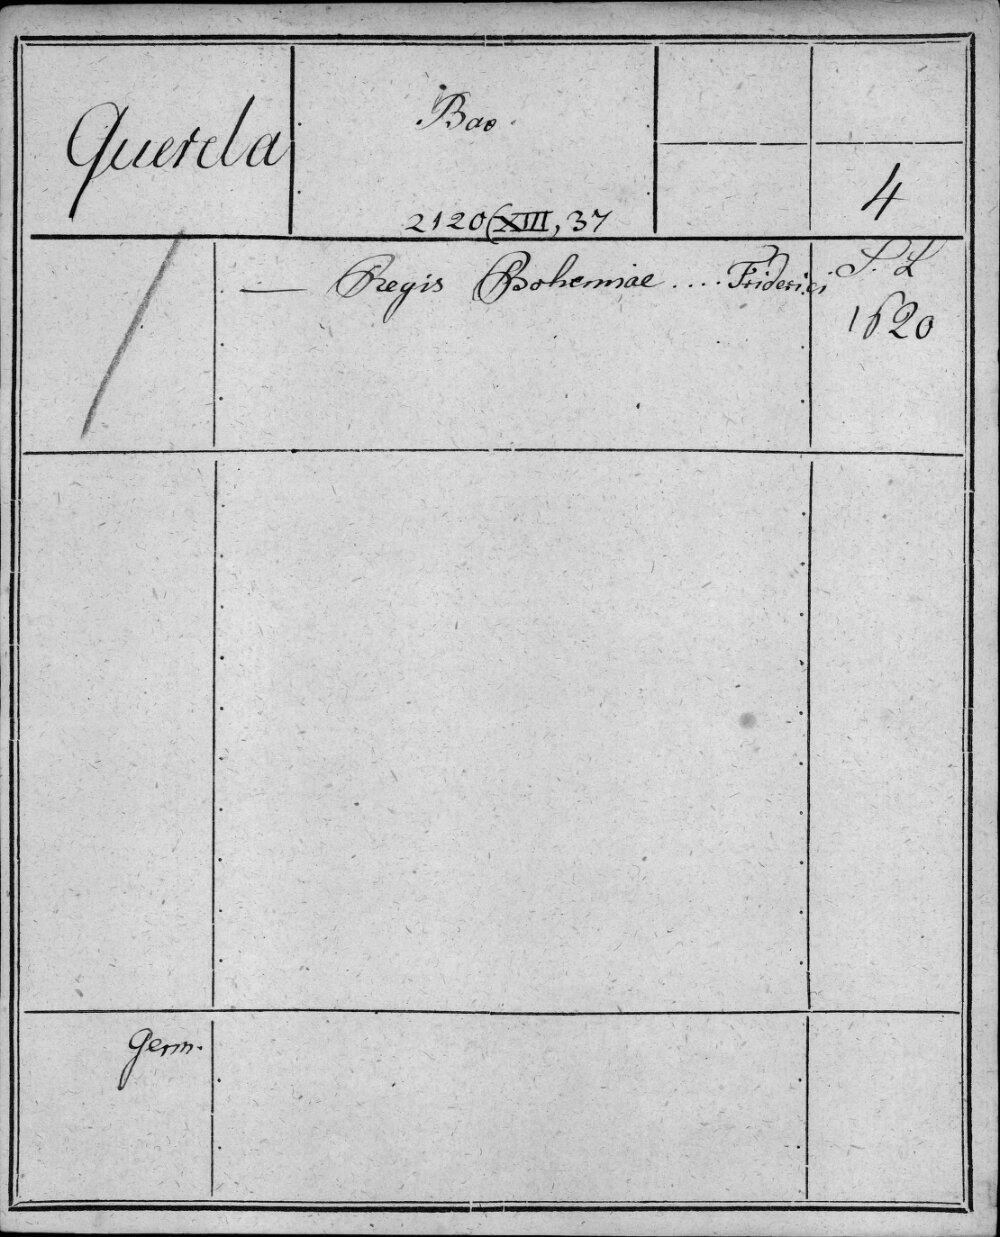 Querela
Bao.
2120(XIII, 37
4
— Regis Bohemiae .... Friderici
S. L
1620
Germ.